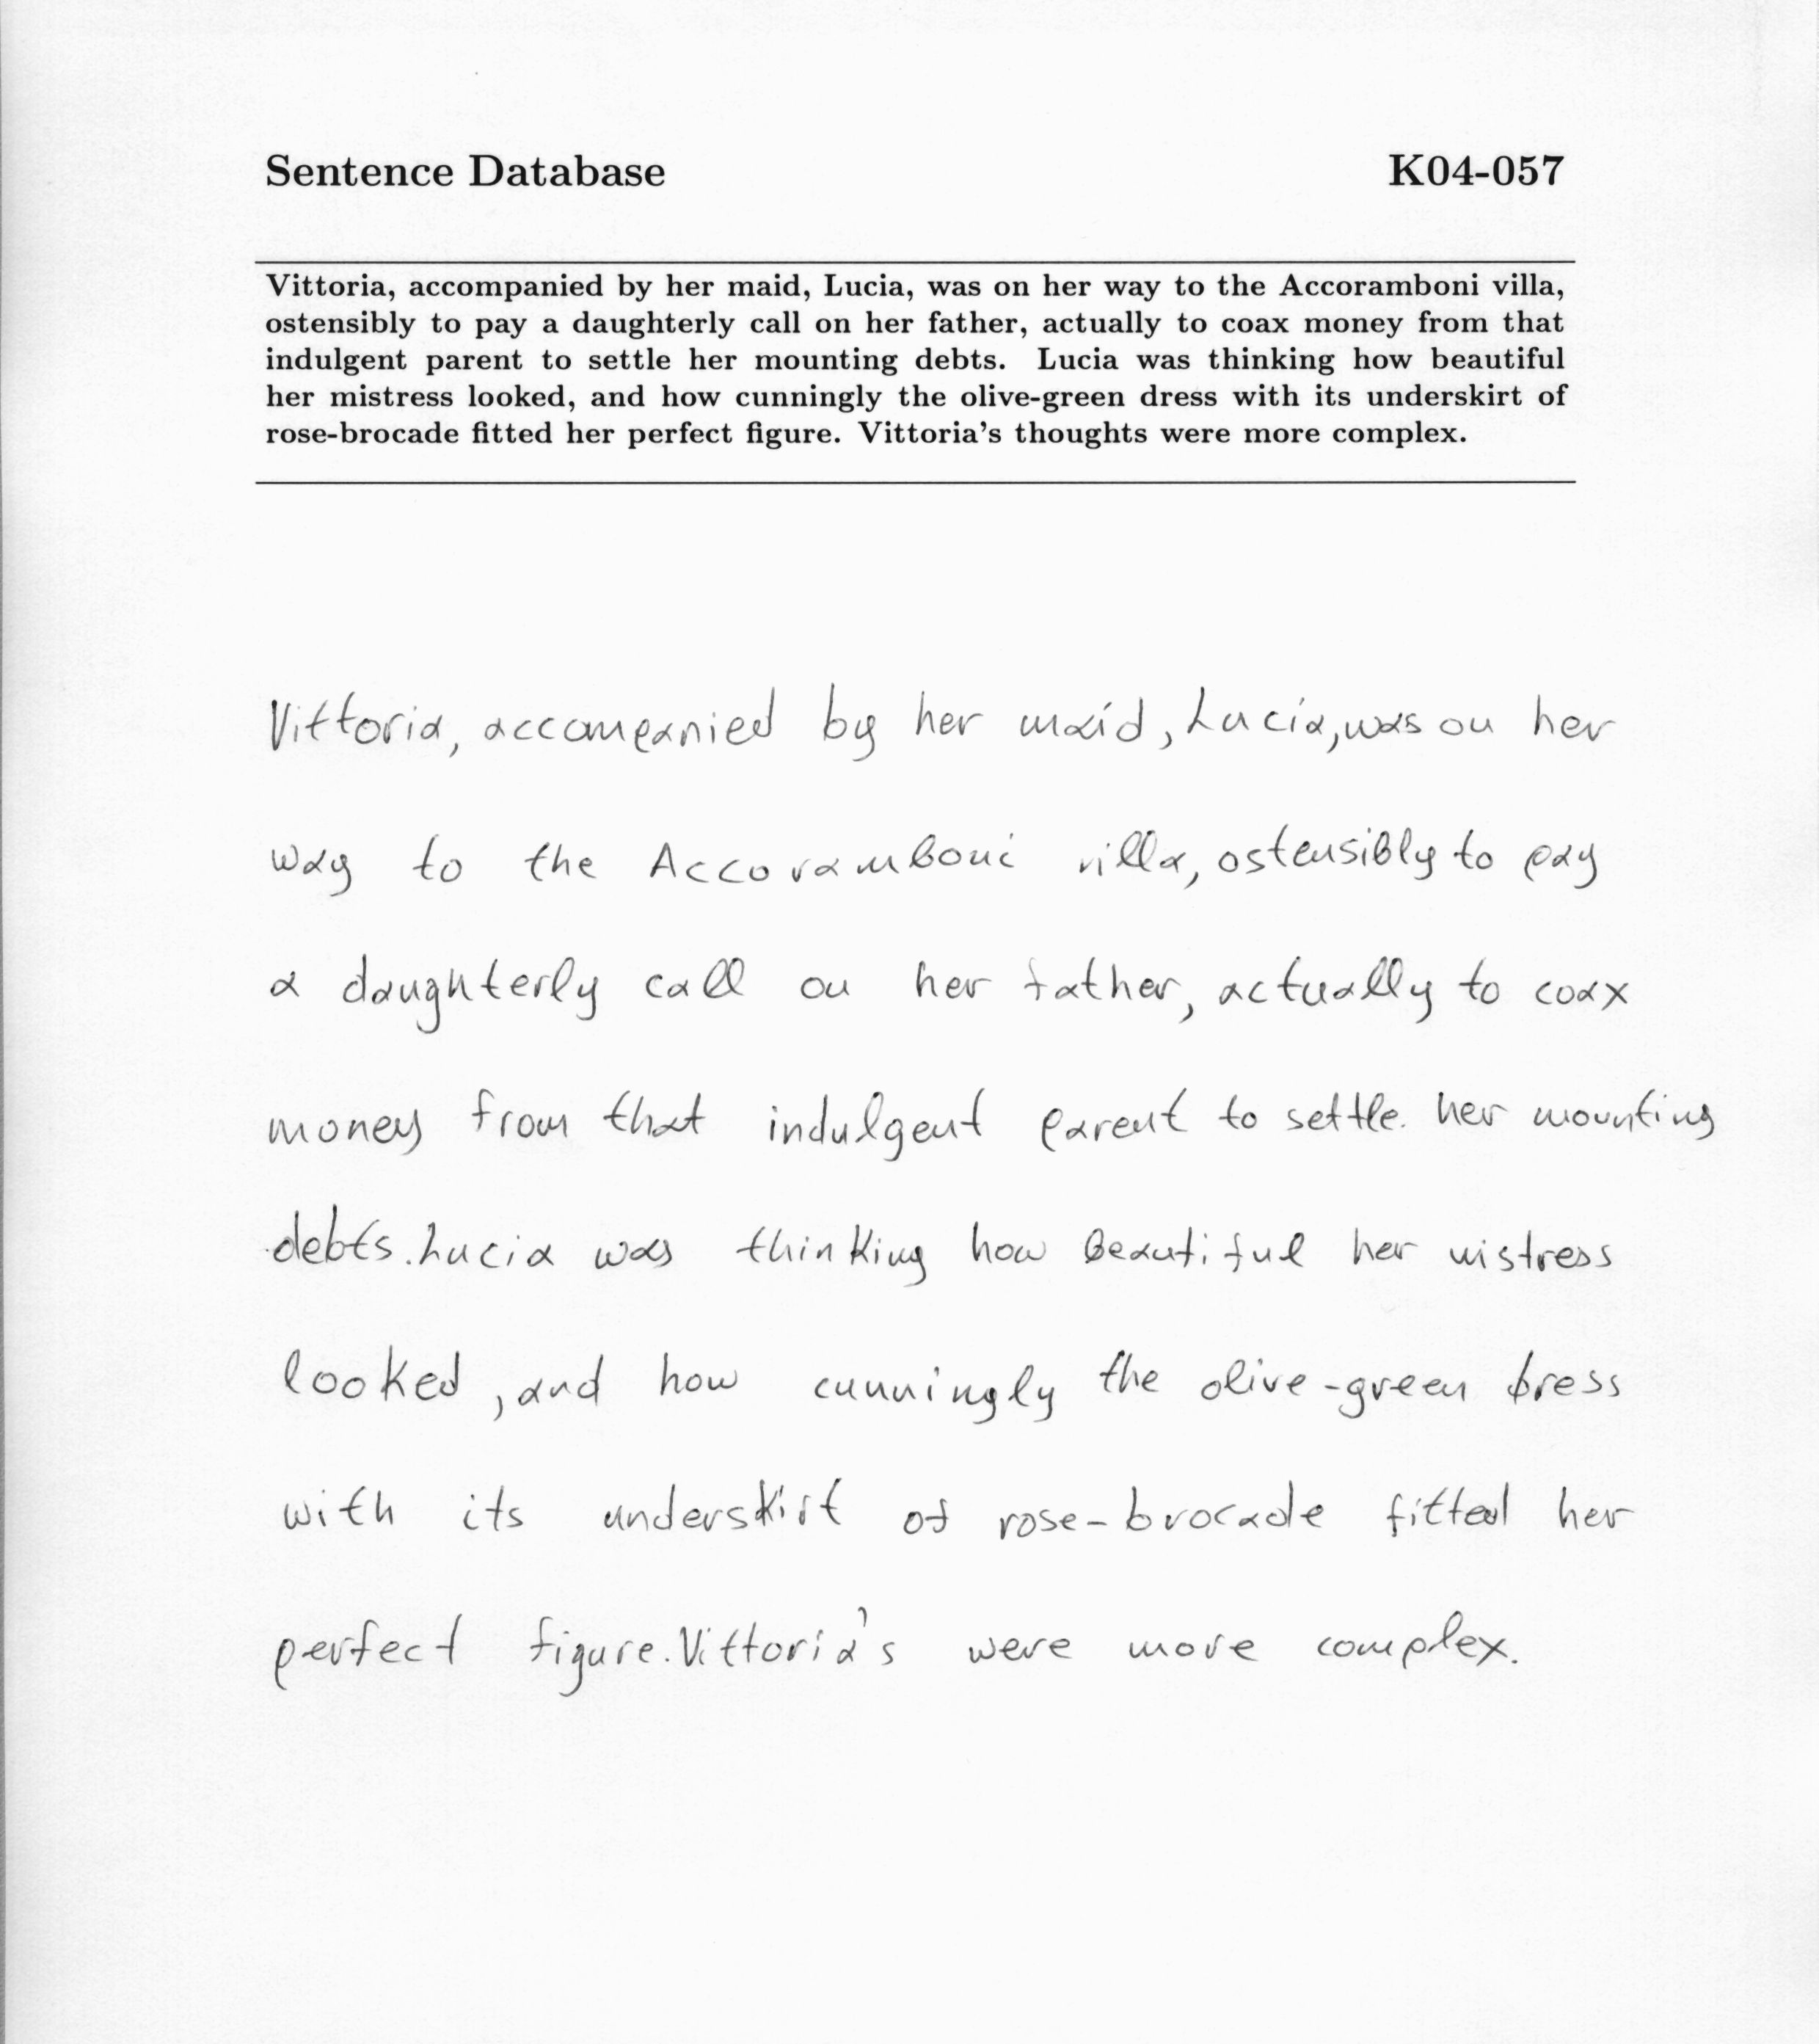 Sentence Database K04-057
Vittoria, accompanied by her maid, Lucia, was on her way to the Accoramboni villa,
ostensibly to pay a daughterly call on her father, actually to coax money from that
indulgent parent to settle her mounting debts. Lucia was thinking how beautiful
her mistress looked, and how cunningly the olive-green dress with its underskirt of
rose-brocade fitted her perfect figure. Vittoria's thoughts were more complex.
Vittoria, accompanied by her maid, Lucia, was on her
way to the Accoramboni villa, ostensibly to pay
a daughterly call on her father, actually to coax
money from that indulgent parent to settle her mounting
debts. Lucia was thinking how beautiful her mistress
looked, and how cunningly the olive-green dress
with its underskirt of rose-brocade fitted her
perfect figure. Vittoria's were more complex.